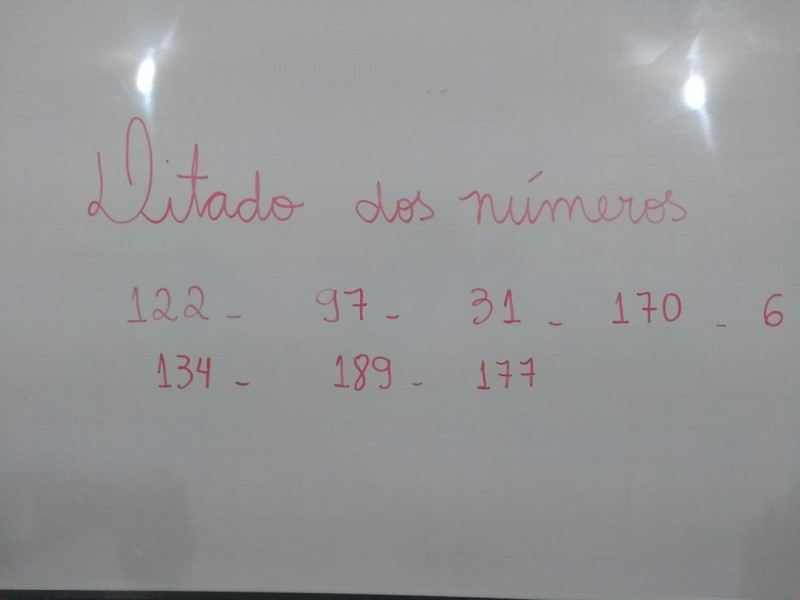 Ditado dos números
122 - 97 - 31 - 170 - 6
134 - 189 - 177